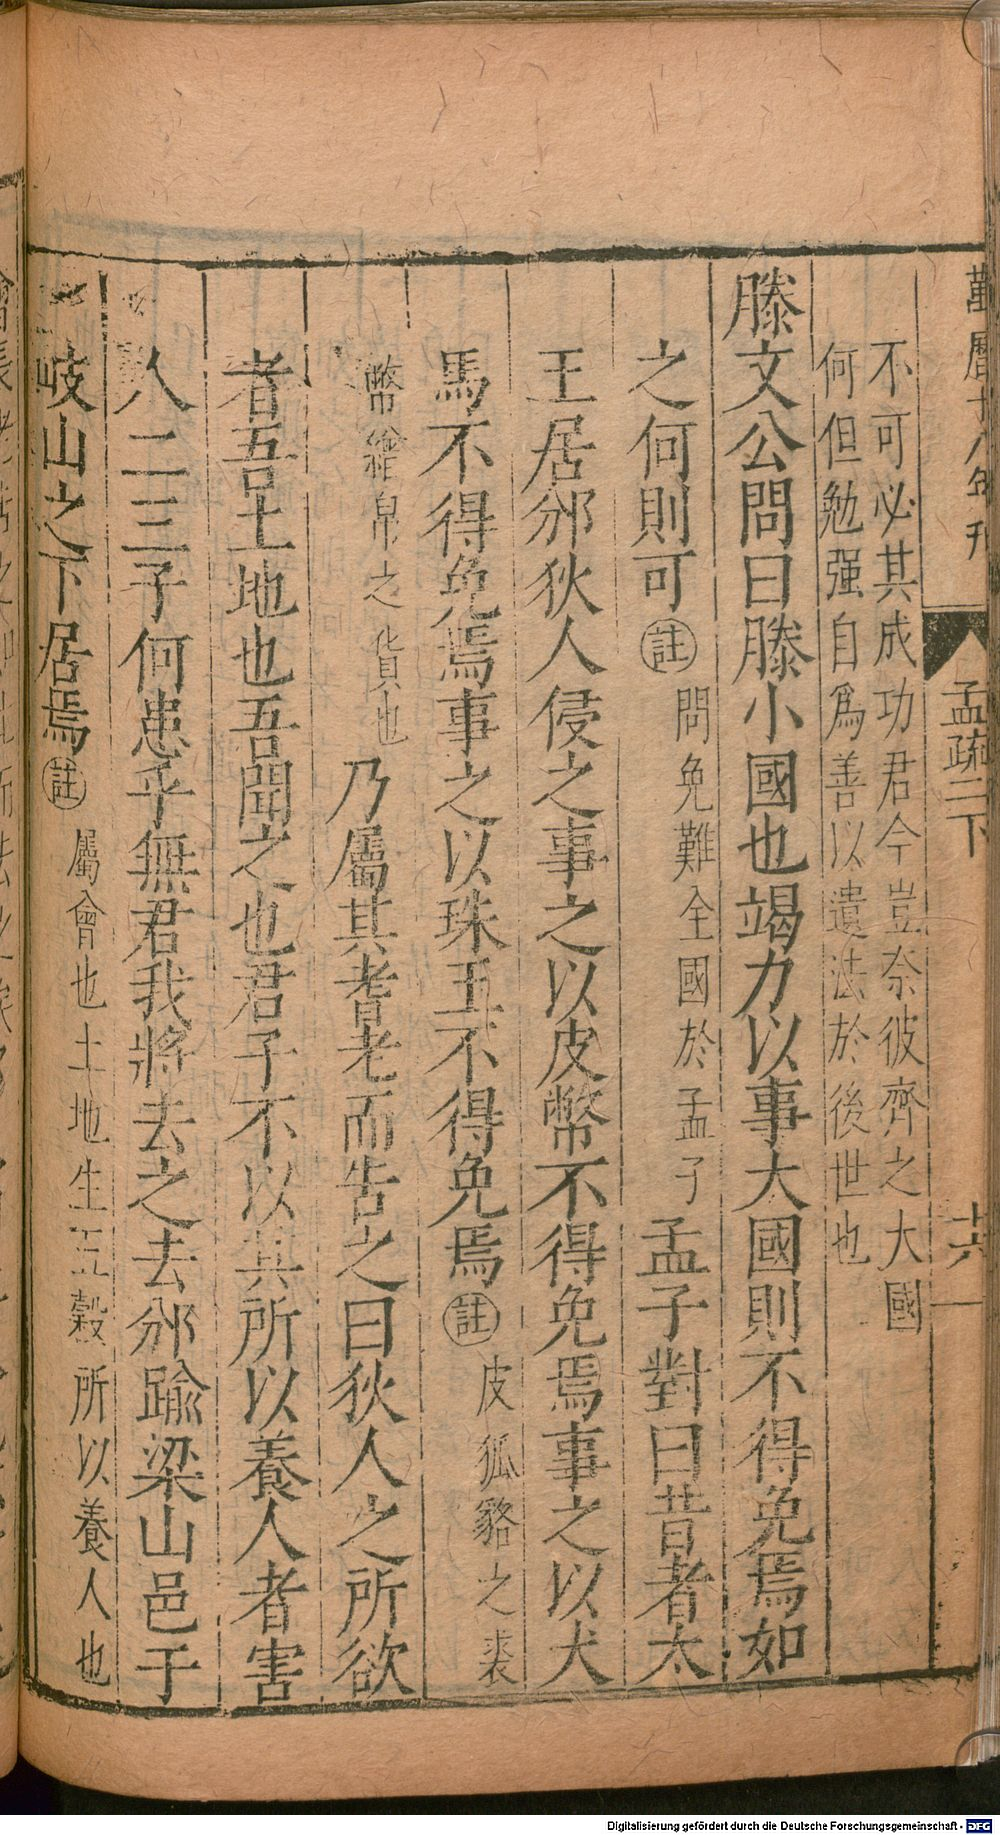 萬曆十八年刊
孟疏二下
十六
不可必其成功君今豈奈彼齊之大國
何但勉强自爲善以遺法於後世也
滕文公問曰滕小國也竭力以事大國則不得免焉如
之何則可註問免難全國於孟子孟子對曰昔者太
王居邠狄人侵之事之以皮幣不得免焉事之以犬
馬不得免焉事之以珠玉不得免焉註皮狐貉之裘
幣繒帛之貨也乃屬其耆老而告之曰狄人之所欲
者吾土地也吾聞之也君子不以其所以養人者害
人二三子何患乎無君我將去之去邠踰梁山邑于
岐山之下居焉註屬會也土地生五穀所以養人也
Digitalisierung gefördert durch die Deutsche Forschungsgemeinschaft - DFG